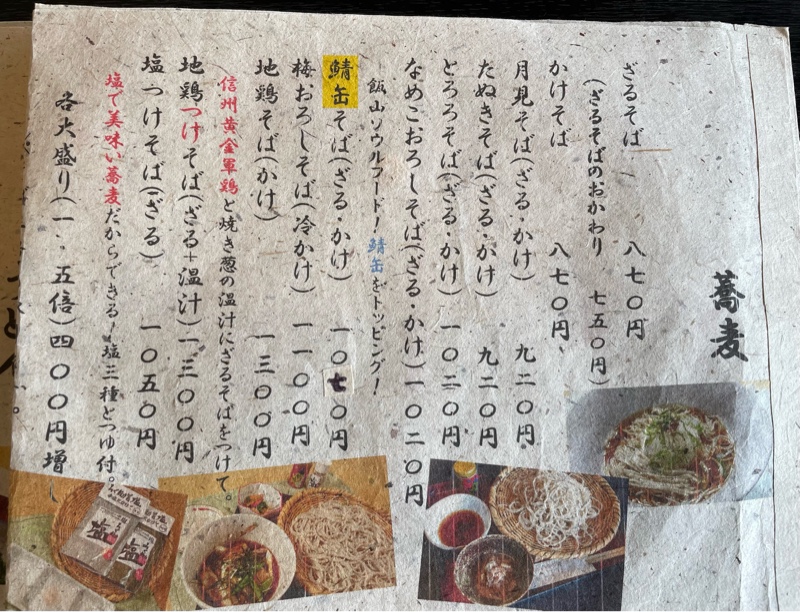 蕎麦
ざるそば 八七〇円
(ざるそばのおかわり 七五〇円)
かけそば 八七〇円
月見そば(ざる・かけ) 九二〇円
たぬきそば(ざる・かけ) 九二〇円
とろろそば(ざる・かけ) 一〇二〇円
なめこおろしそば(ざる・かけ) 一〇二〇円
飯山ソウルフード!鯖缶をトッピング!
鯖缶そば(ざる・かけ) 一〇七〇円
梅おろしそば(冷かけ) 一一〇〇円
地鶏そば(かけ) 一三〇〇円
信州黄金軍鶏と焼き葱の温汁にざるそばをつけて。
地鶏つけそば(ざる+温汁) 一三〇〇円
塩つけそば(ざる) 一〇五〇円
塩で美味い蕎麦だからできる!塩三種とつゆ付。
各大盛り(一、五倍)四〇〇円増
塩
塩